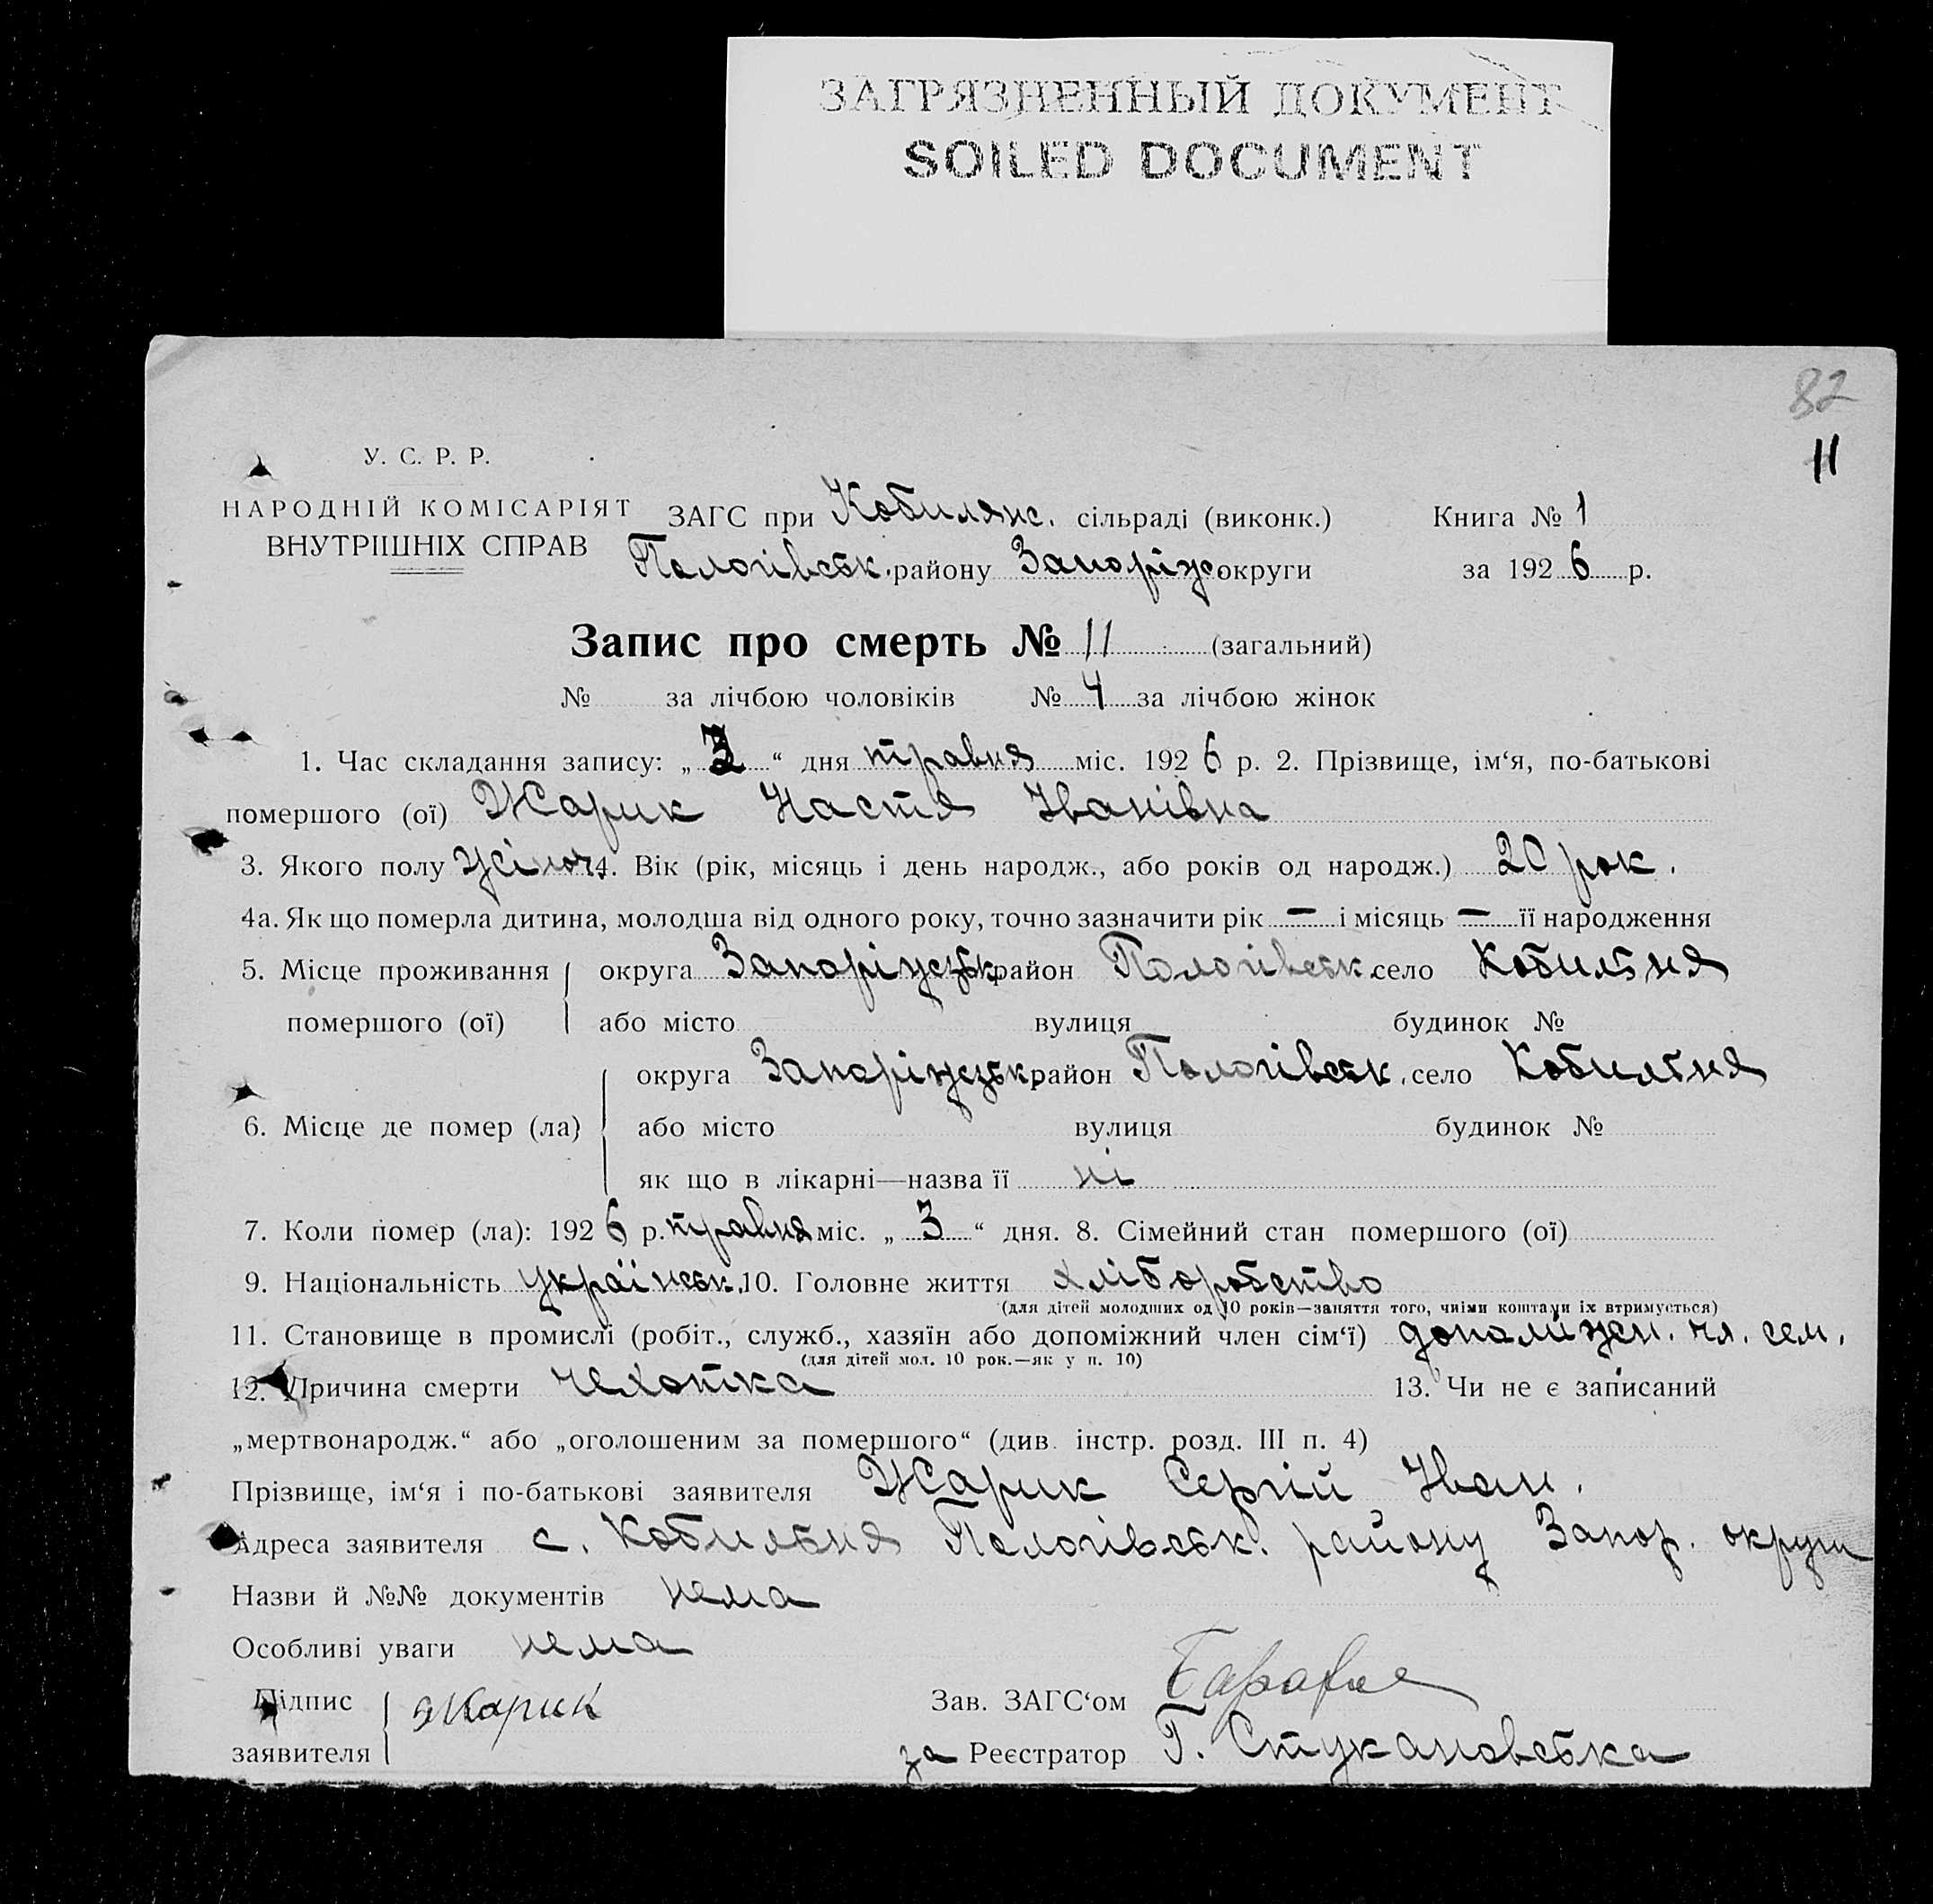 ЗАГРЯЗНЕННЫЙ ДОКУМЕНТ
SOILED DOCUMENT
82
11
У. С. Р. Р.
НАРОДНІЙ КОМІСАРІЯТ
ВНУТРІШНІХ СПРАВ
ЗАГС при Кобилянс. сільраді (виконк.) Книга № 1
Пологівськ. району Запоріж округи за 1926 р.
Запис про смерть № 11 (загальний)
№ за лічбою чоловіків № 4 за лічбою жінок
1. Час складання запису: „3“ дня травня міс. 1926 р. 2. Прізвище, ім‘я, по-батькові
помершого (ої) Жарик Настя Іванівна
3. Якого полу жіноч. 4. Вік (рік, місяць і день народж., або років од народж.) 20 рок.
4а. Як що померла дитина, молодша від одного року, точно зазначити рік — і місяць — її народження
5. Місце проживання округа Запоріжськ район Пологівськ. село Кобильня
помершого (ої) або місто вулиця будинок №
округа Запоріжськ район Пологівськ. село Кобильня
6. Місце де помер (ла) або місто вулиця будинок №
як що в лікарні—назва її ні
7. Коли помер (ла): 1926 р. травня міс. „3“ дня. 8. Сімейний стан помершого (ої)
9. Національність українськ. 10. Головне життя хліборобство
(для дітей молодших од 10 років—заняття того, чиїми коштами їх втримується)
11. Становище в промислі (робіт., служб., хазяїн або допоміжний член сім‘ї) допоміжн. чл. сем.
(для дітей мол. 10 рок.—як у п. 10)
12. Причина смерти чехотка 13. Чи не є записаний
„мертвонародж.“ або „оголошеним за помершого“ (див. інстр. розд. III п. 4)
Прізвище, ім‘я і по-батькові заявителя Жарик Сергій Іван.
Адреса заявителя с. Кобильня Пологівськ. району Запор. округи
Назви й №№ документів нема
Особливі уваги нема
Підпис заявителя Жарик Зав. ЗАГС‘ом
за Реєстратор Г. Стукановська